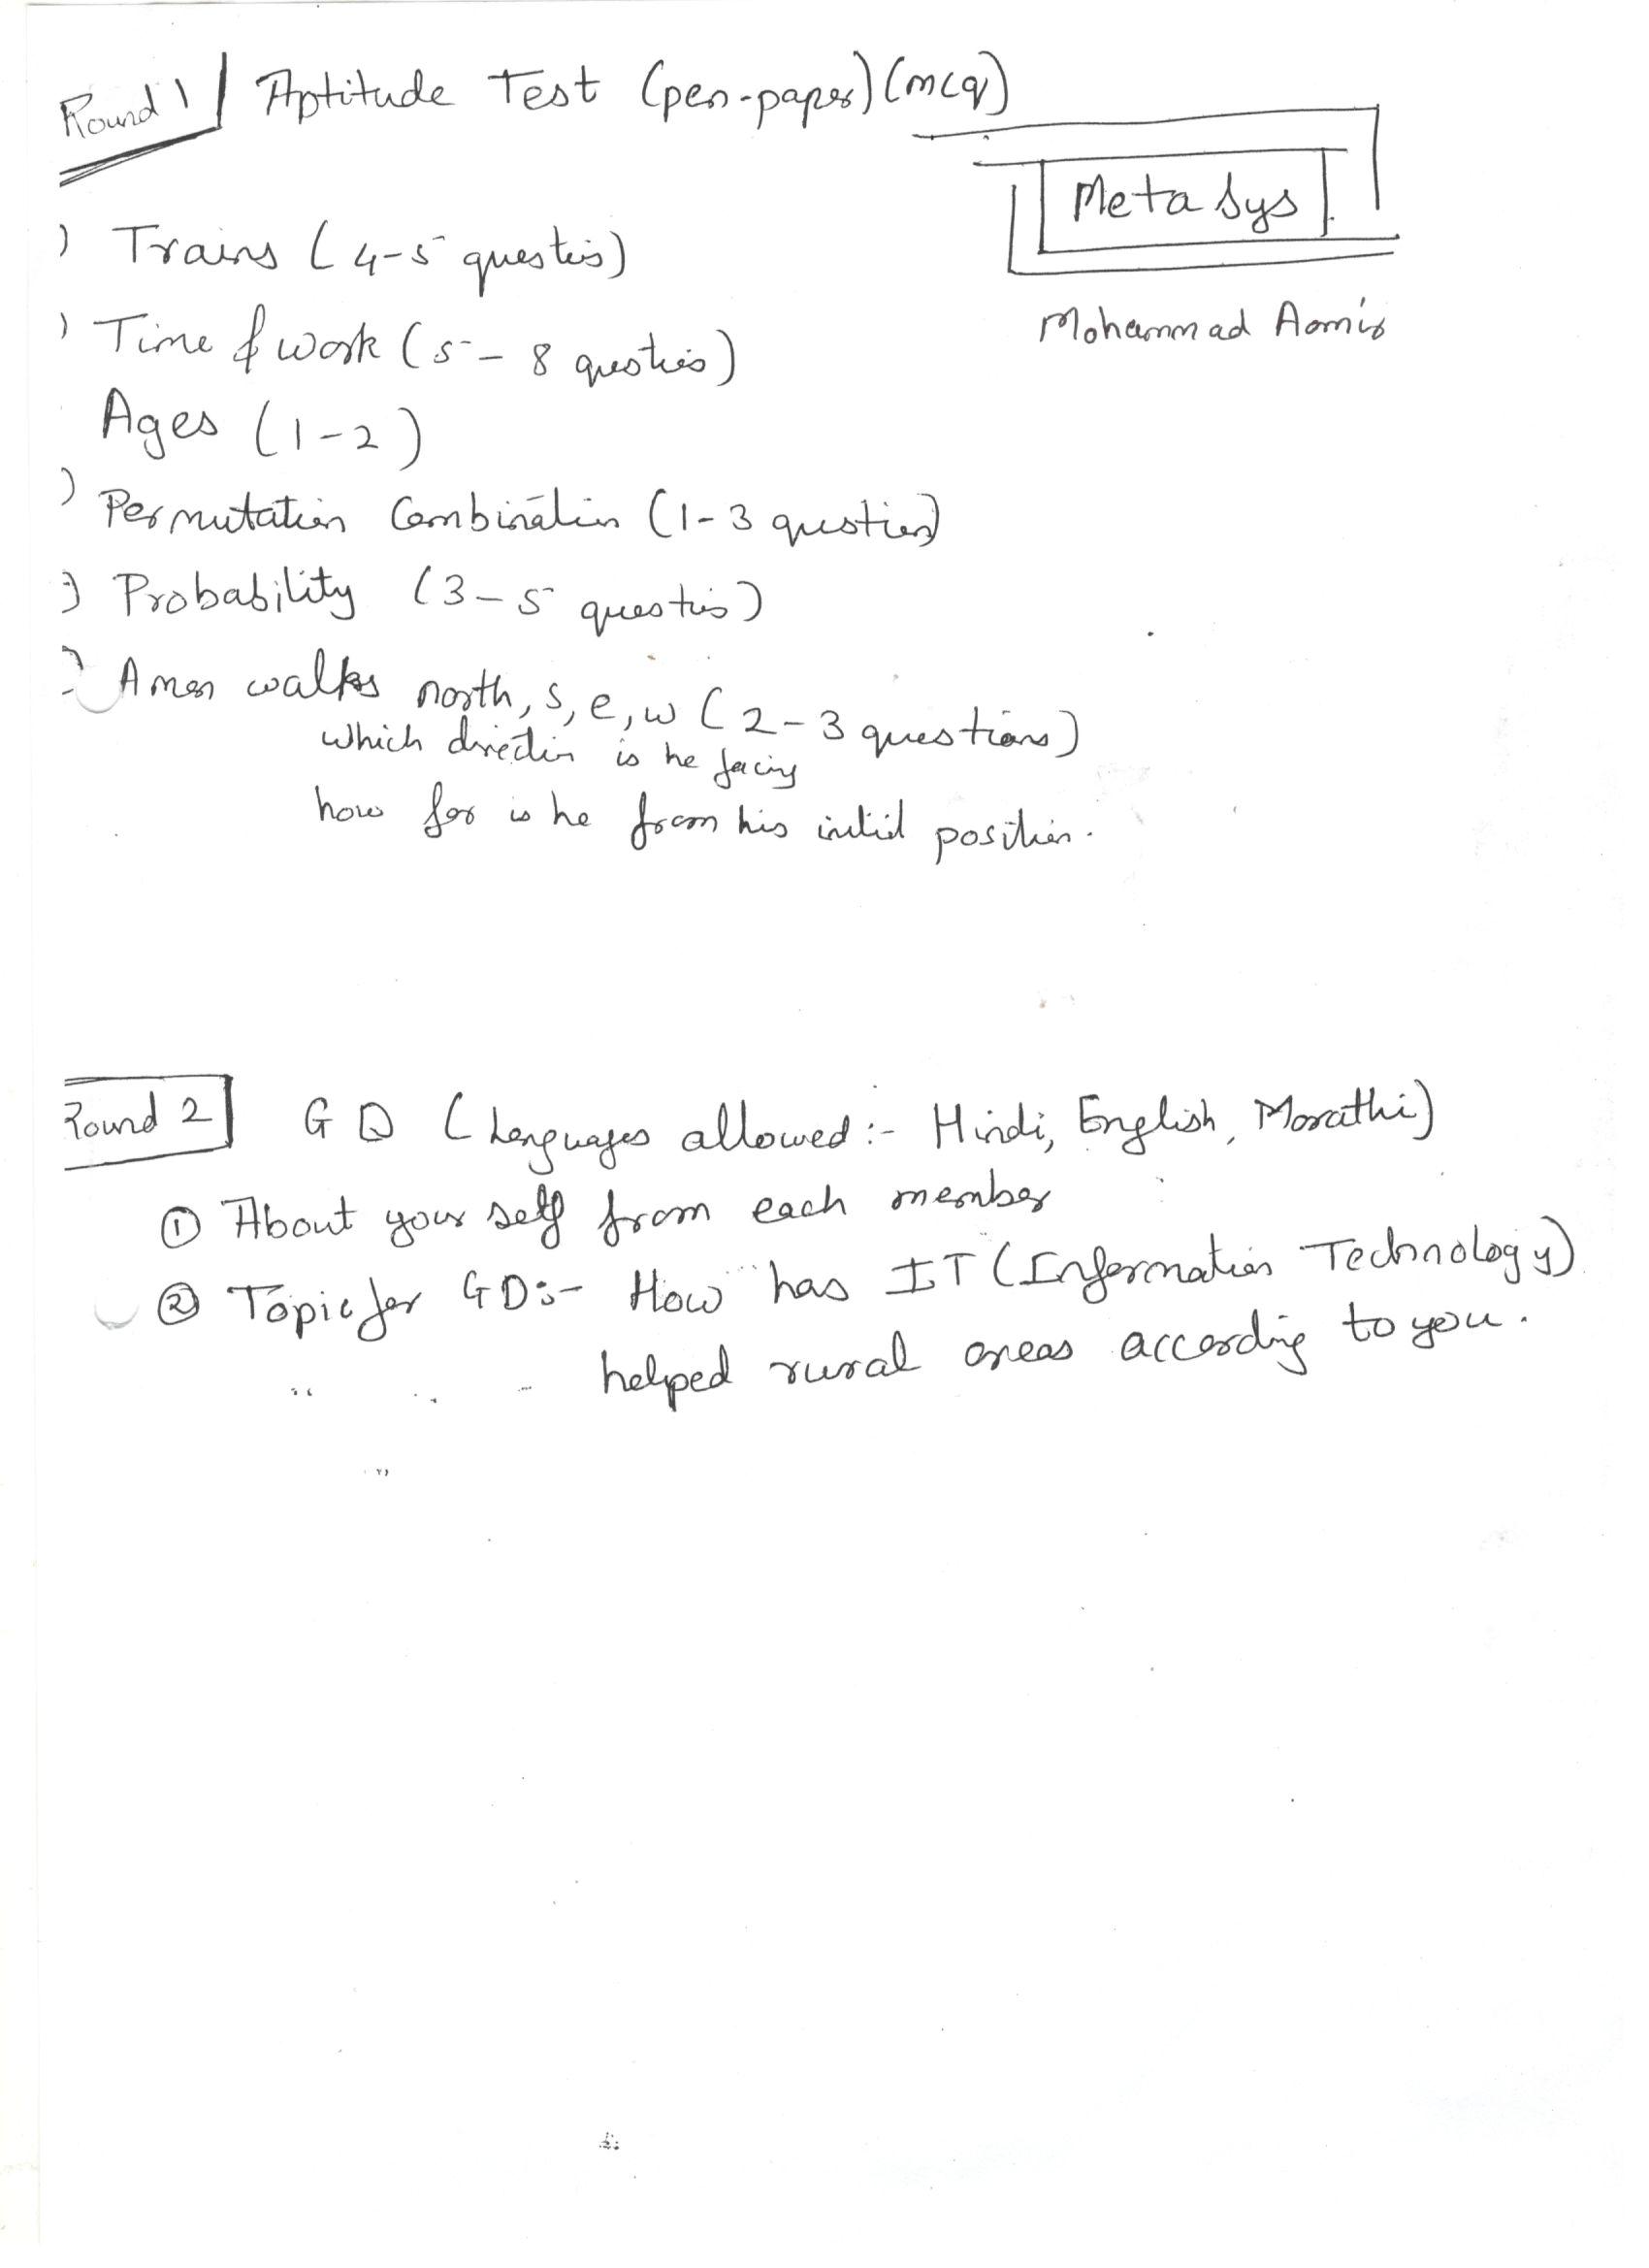 Round 1 Aptitude Test (pen-paper) (mcq)
MetaSys
Mohammad Aamir
) Trains (4-5 questions)
) Time & work (5-8 questions)
Ages (1-2)
) Permutation Combination (1-3 question)
) Probability (3-5 questions)
) A man walks north, s, e, w (2-3 questions)
which direction is he facing
how far is he from his initial position.
Round 2 GD (Languages allowed:- Hindi, English, Marathi)
① About your self from each member
② Topic for GD:- How has IT (Information Technology)
helped rural areas according to you.